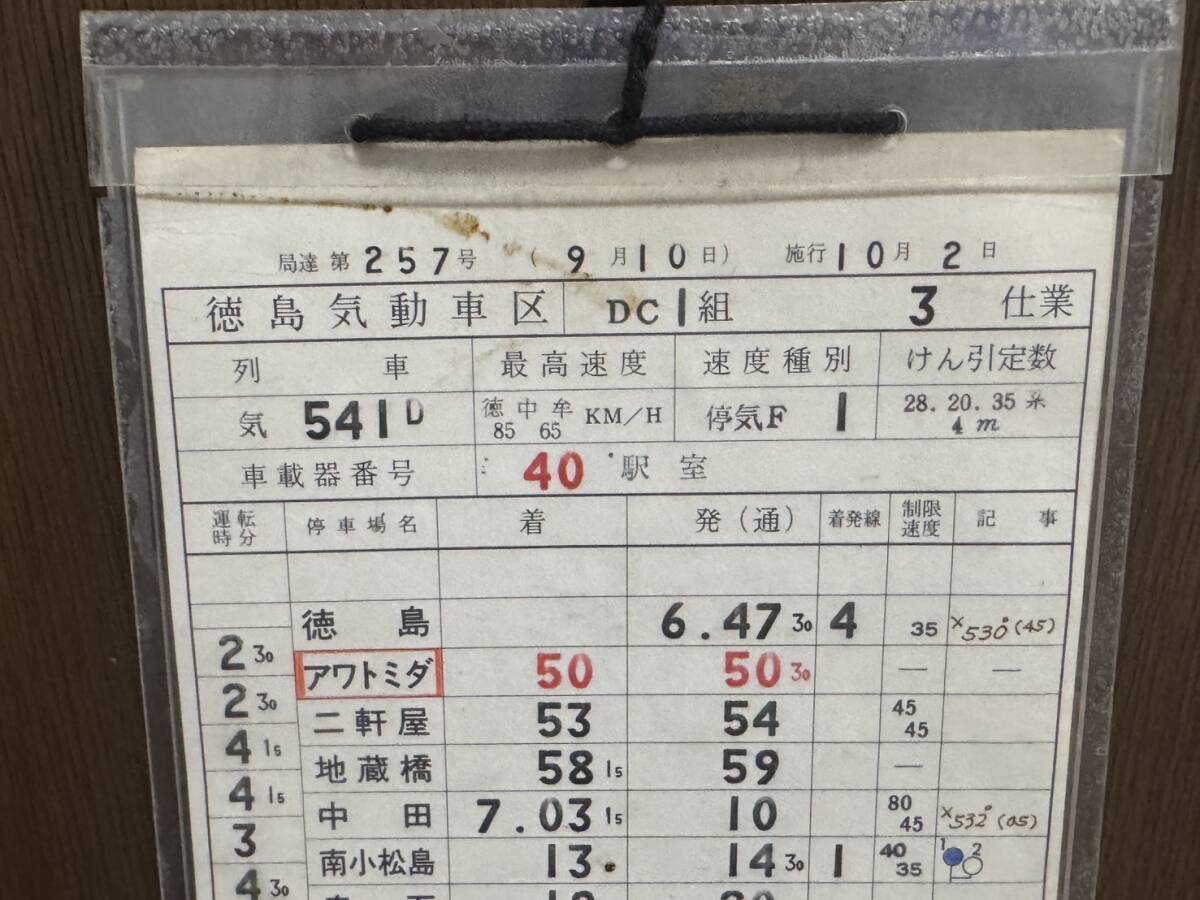 局達第257号 (9月10日) 施行10月2日
徳島気動車区 DC1組 3仕業
列車 最高速度 速度種別 けん引定数
気 541D 徳中牟 85 65 KM/H 停気F 1 28.20.35系 4m
車載器番号 40 駅室
運転時分 停車場名 着 発(通) 着発線 制限速度 記事
徳島 6.47 30 4 35 ×530D (45)
2 30
アワトミダ 50 50 30 — —
2 30
二軒屋 53 54 45 45
4 15
地蔵橋 58 15 59 —
4 15
中田 7.03 15 10 80 45 ×532D (05)
3
南小松島 13 14 30 1 40 35 1 2
4 30